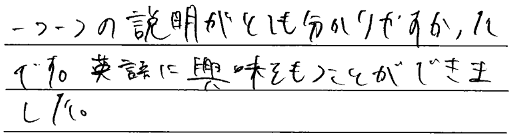 一つ一つの説明がとても分かりやすかった
です。英語に興味をもつことができま
した。